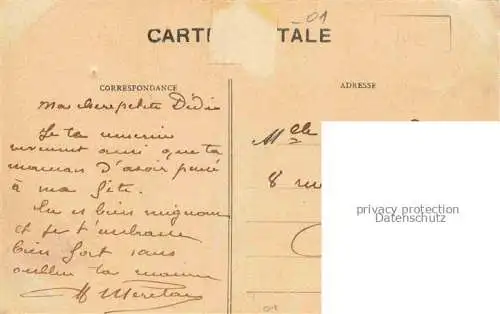 01
CARTE POSTALE
CORRESPONDANCE
ADRESSE
Ma chere petite Dédie
Je te remercie
vivement ainsi que ta
maman d'avoir pensé
à ma fête.
Tu es bien mignonne
et je t'embrasse
bien fort sans
oublier ta maman
Mlle
8 rue
privacy protection
Datenschutz
01